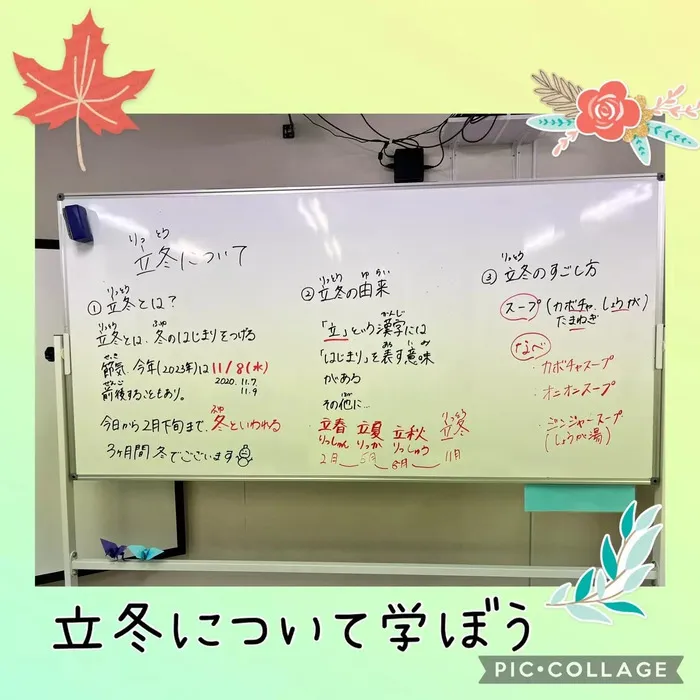 りっとう
立冬について
① 立冬とは?
りっとう
りっとう ふゆ
立冬とは、冬のはじまりをつげる
せっき
節気、今年(2023年)は11/8(水)
ぜんご
前後することもあり。
2020. 11.7
11.9
ふゆ
今日から2月下旬まで、冬といわれる
3ヶ月間 冬でございます
② 立冬の由来
りっとう ゆらい
かんじ
「立」という漢字には
あらわ いみ
「はじまり」を表す意味
がある
その他に…
りっとう
立春 立夏 立秋 立冬
りっしゅん りっか りっしゅう
2月 5月 8月 11月
りっとう
③ 立冬のすごし方
スープ (カボチャ、しょうが)
たまねぎ
なべ
・カボチャスープ
・オニオンスープ
・ジンジャースープ
(しょうが湯)
立冬について学ぼう
PIC•COLLAGE